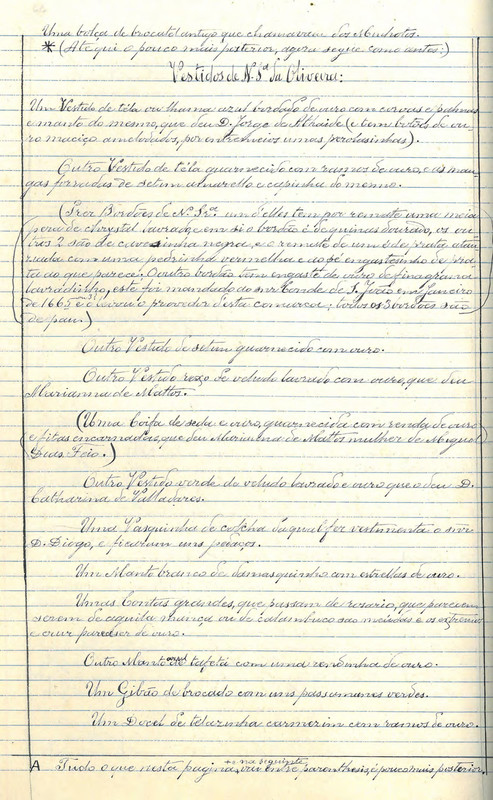 Uma bolça de brocatel antigo que chamavam dos Minhotos.
* (Ate qui o pouco mais posterior, agora segue como antes:)
Vestidos de N. Sra da Oliveira:
Um Vestido de téla ou lhama azul bordado de ouro com coroas e palmas
e manto do mesmo, que deu D. Jorge de Athaide (e tem botões de ou-
ro maciço amelodados, por entremeios umas perolasinhas).
Outro Vestido de téla guarnecido com ramos de ouro, e as man-
gas forradas de setim amarello e capinha do mesmo.
(Trez Bordões de Na. Sra. um d'elles tem por remate uma meia
pera de chrystal lavrada em si o bordão é de quinas dourado, os ou-
tros 2 são de cuvesinha negra, e o remate de um é da prata atau-
xiada com uma pedrinha vermelha e ao pé engastesinho de pra-
ta ao que parece. O outro bordão tem engaste de ouro de finagrana
lavradinho, este foi mandado do snr Conde de S. João em Janeiro
de 1665 e levou o provedor d'esta comarca; todos os 3 bordões são
de pau.)
Outro Vestido de setim guarnecido com ouro.
Outro Vestido roxo de veludo lavrado com ouro, que deu
Marianna de Mattos.
(Uma Coifa de seda e ouro, guarnecida com renda de ouro
e fitas encarnadas, que deu Marianna de Mattos mulher de Miguel
Dias Feio.)
Outro Vestido verde de veludo lavrado e ouro que o deu D.
Catharina de Valladares.
Uma Vasquinha de colcha da qual fez vestimenta o snr
D. Diogo, e ficaram uns pedaços.
Um Manto branco de damasquinho com estrellas de ouro.
Umas Contas grandes, que pussam de rosario, que parecem
serem de aquila mança ou de calambuco sao meudas e os extremos
e cruz parecer de ouro.
Outro Manto azul de tafetá com uma rendinha de ouro.
Um Gibão de brocado com uns passamanes verdes.
Um Docel de telazinha carmezim com ramos de ouro.
A Tudo o que nesta pagina, e na seguinte vai entre parenthesis, é pouco mais posterior.